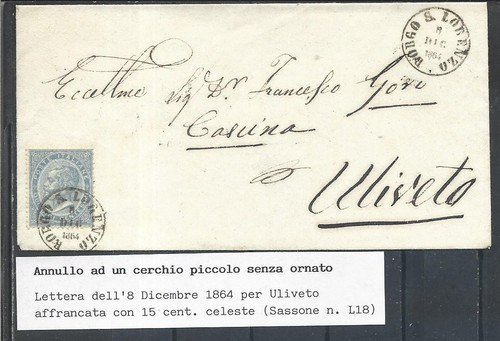 BORGO S. LORENZO
8
DIC
1864
Eccellmo Sig Dr. Francesco Gori
Cascina
Uliveto
POSTE ITALIANE
BORGO S. LORENZO
8
DIC
1864
Annullo ad un cerchio piccolo senza ornato
Lettera dell'8 Dicembre 1864 per Uliveto
affrancata con 15 cent. celeste (Sassone n. L18)